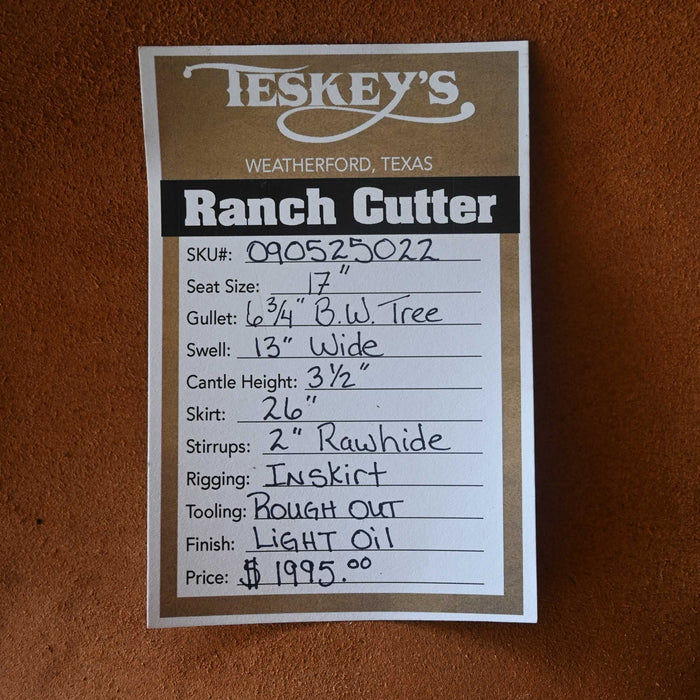 TESKEY'S
WEATHERFORD, TEXAS
Ranch Cutter
SKU#: 090525022
Seat Size: 17"
Gullet: 6 3/4" B.W. Tree
Swell: 13" Wide
Cantle Height: 3 1/2"
Skirt: 26"
Stirrups: 2" Rawhide
Rigging: INSkirt
Tooling: ROUGH OUT
Finish: LIGHT Oil
Price: $ 1995.00